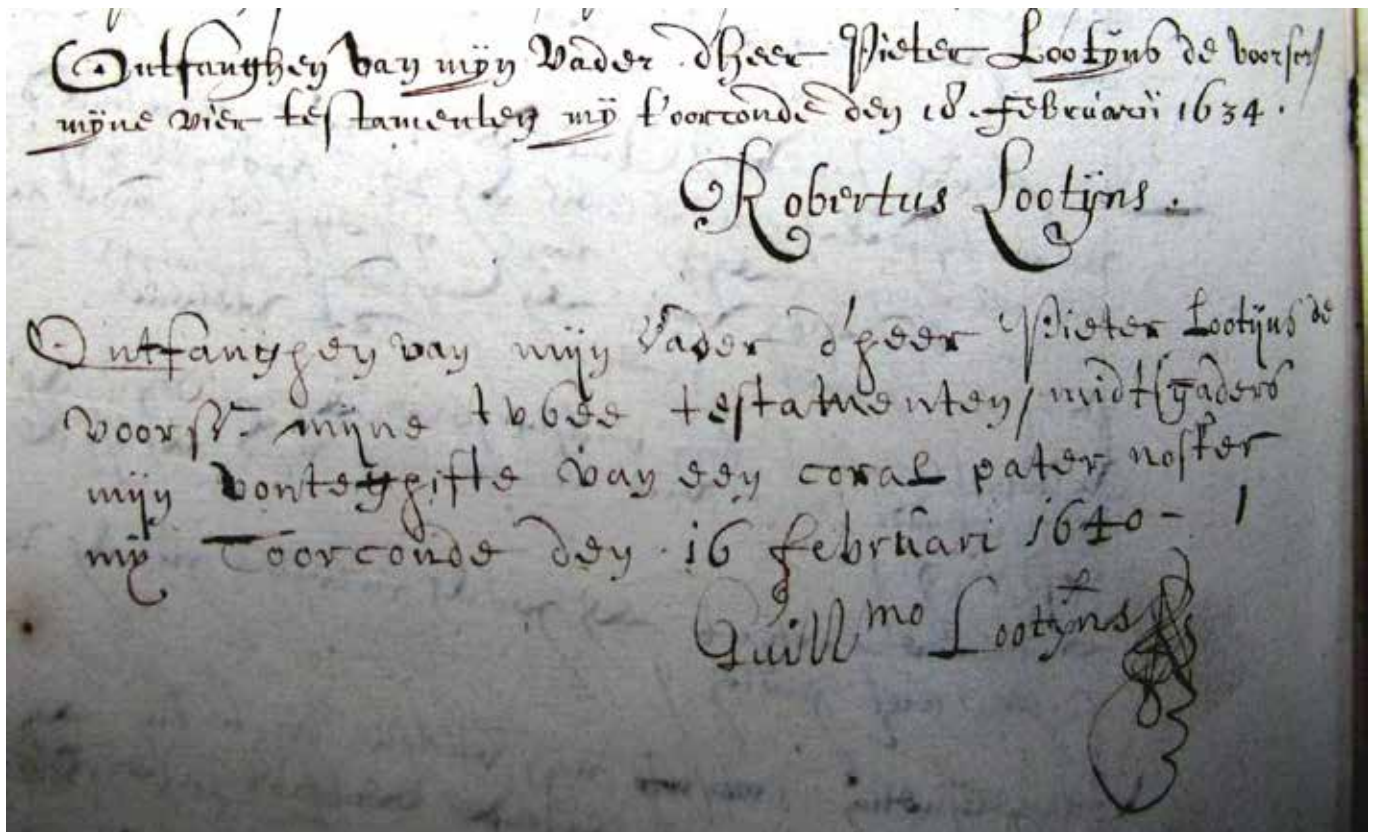 Ontfanghen van mijn Vader dheer Pieter Lootijns de voorscr/
mijne vier testamenten mij t'oorconde den 18. Februarij 1634.
Robertus Lootijns.
Ontfanghen van mijn Vader d'heer Pieter Lootijns de
voorss. mijne twee testamenten / midtsgaders
mijn vontegifte van een coral pater noster
mij Toorconde den 16 februari 1640 -
Guill mo Lootijns